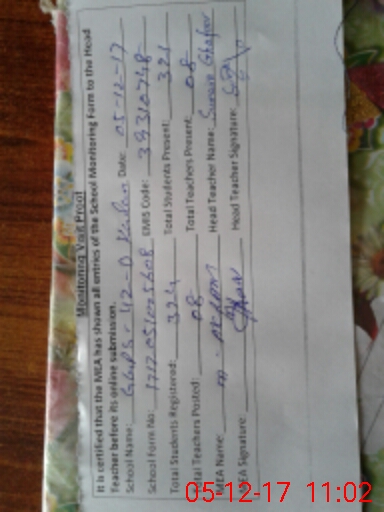 Monitoring Visit Proof
It is certified that the MEA has shown all entries of the School Monitoring Form to the Head
Teacher before its online submission.
School Name: GGPS - 42-D Date: 05-12-17
School Form No: EMIS Code: 39310748
Total Students Registered: 324 Total Students Present: 321
Total Teachers Posted: 08 Total Teachers Present: 08
MEA Name: Head Teacher Name: Ghafoor
MEA Signature: Head Teacher Signature:
05-12-17 11:02